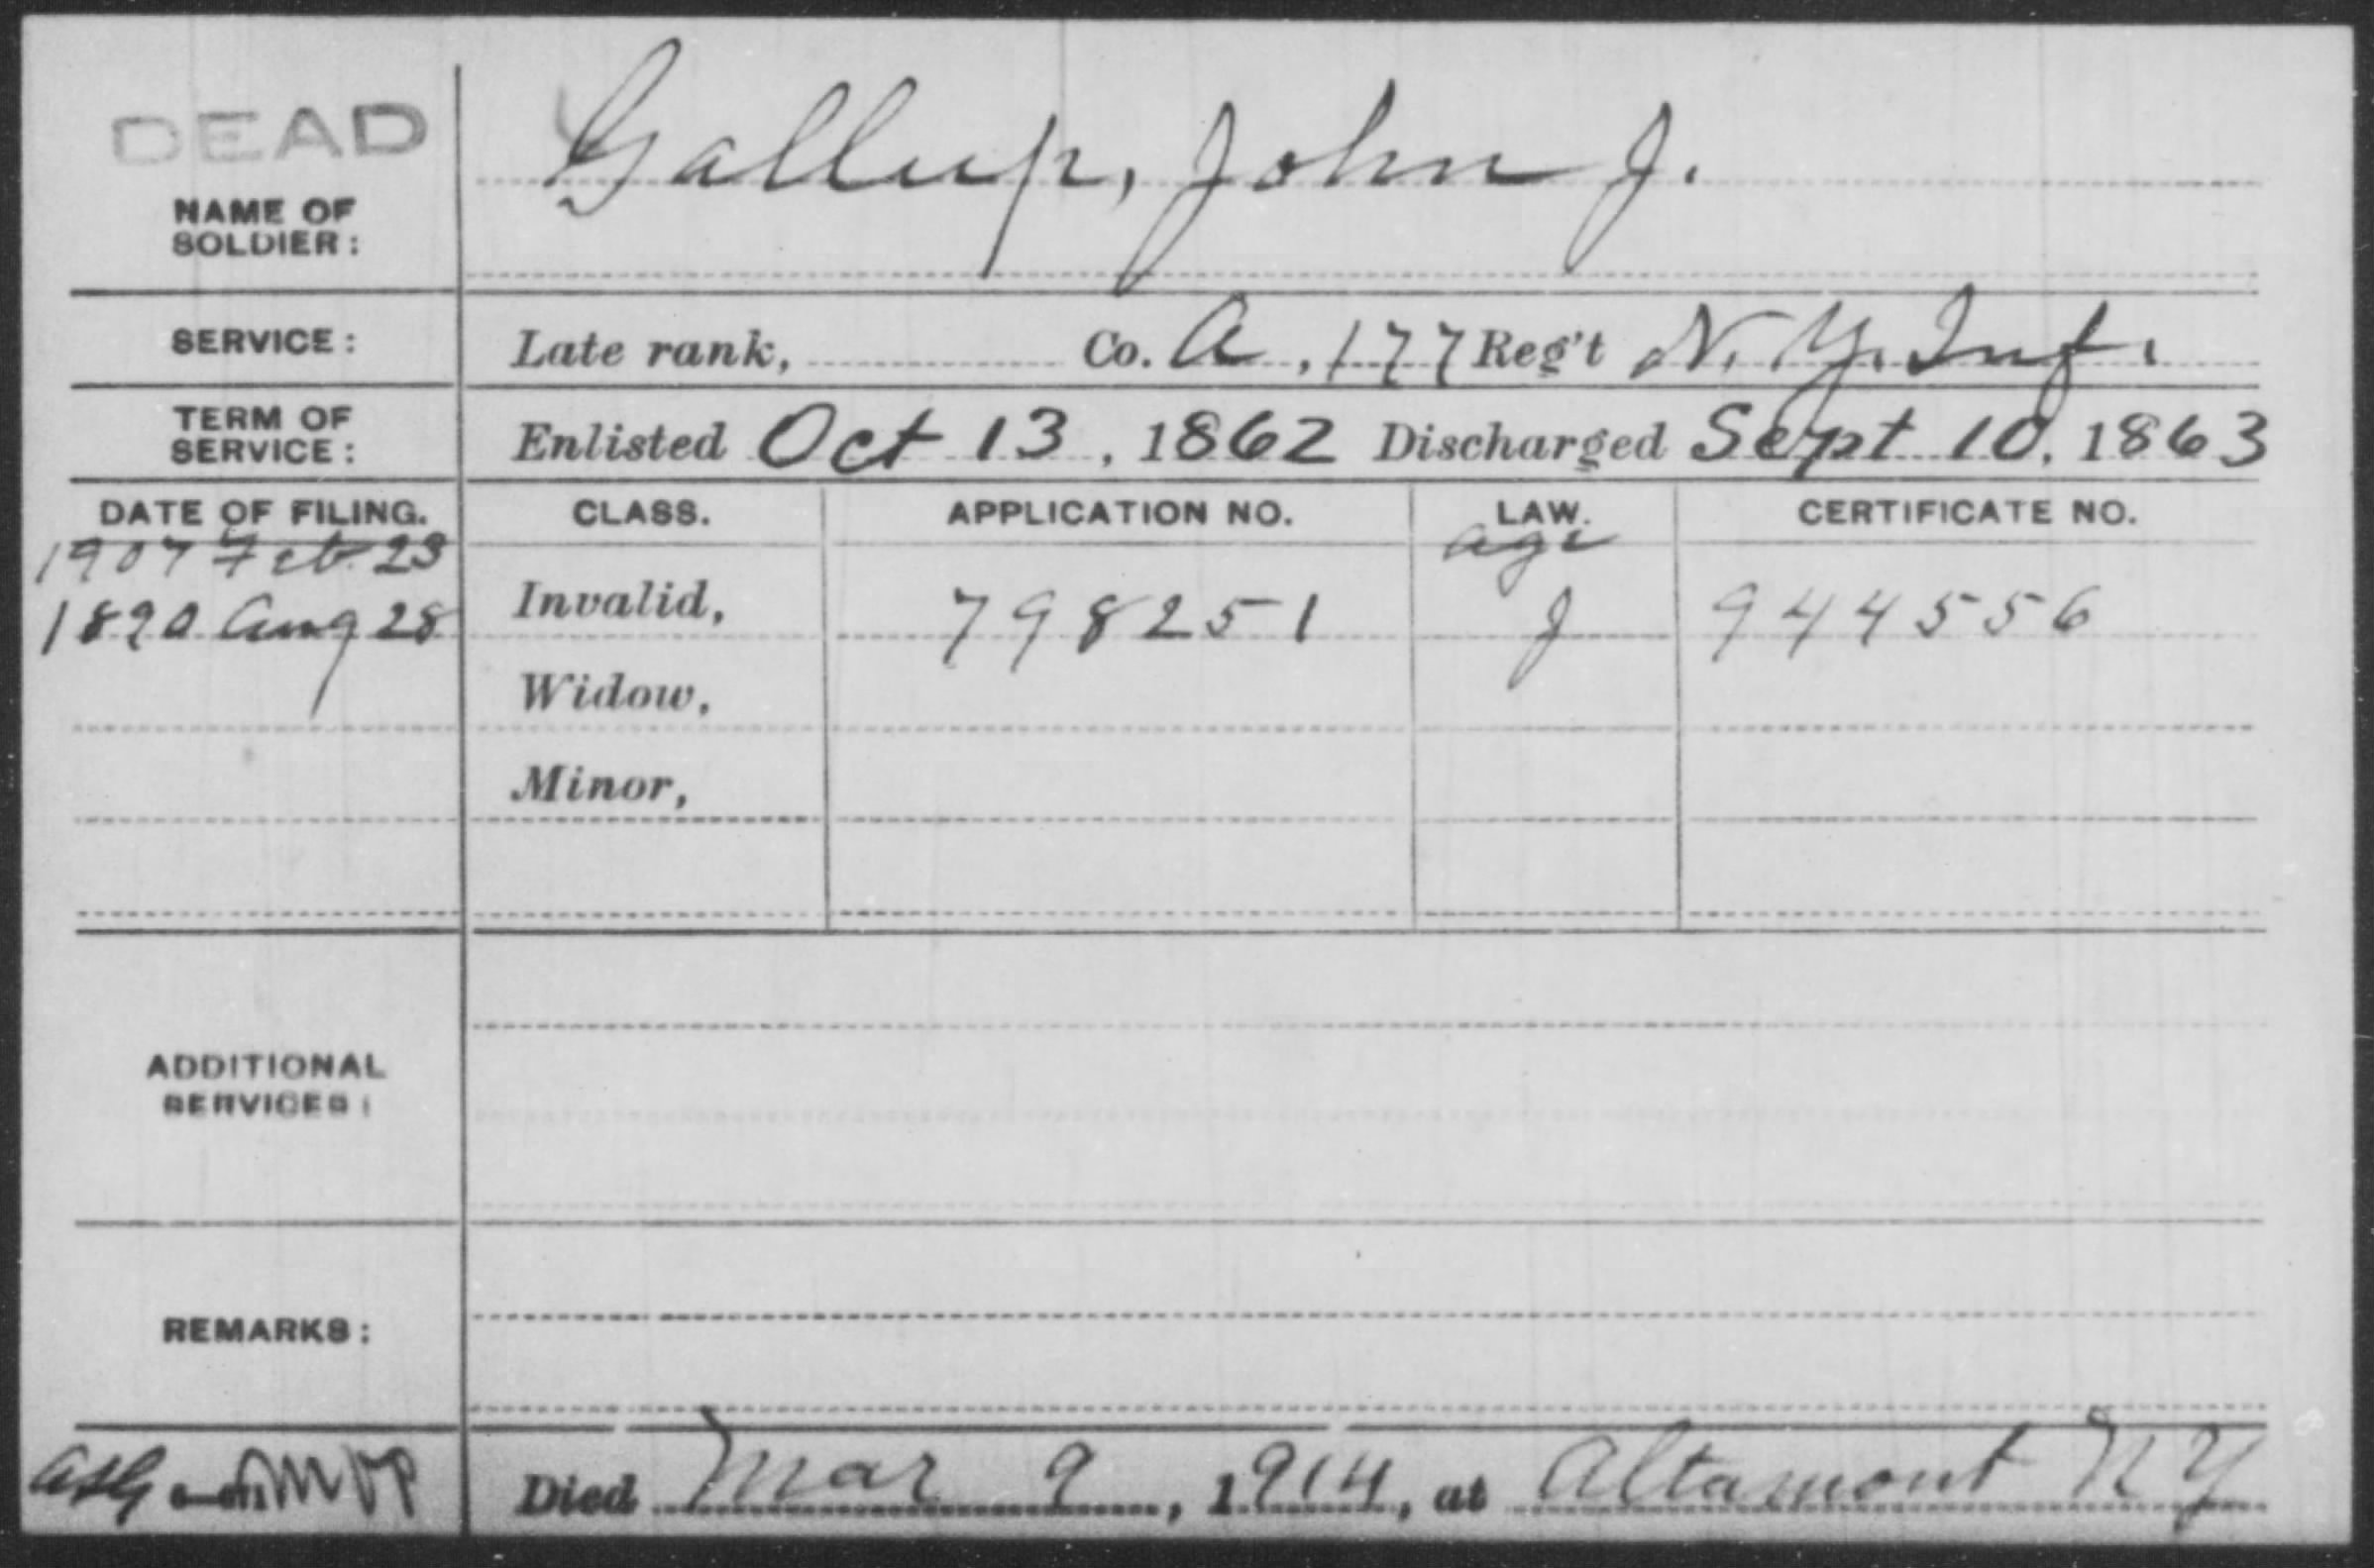 DEAD
Gallup, John J.
NAME OF
SOLDIER:
SERVICE: Late rank, Co. A, 177 Reg't N. Y. Inf.
TERM OF
SERVICE: Enlisted Oct 13, 1862 Discharged Sept 10, 1863
DATE OF FILING. CLASS. APPLICATION NO. LAW. CERTIFICATE NO.
1907 Feb. 23 age
1890 Aug 28 Invalid, 798251 J 944556
Widow,
Minor,
ADDITIONAL
SERVICES:
REMARKS:
Died Mar 9, 1914, at Altamont N Y